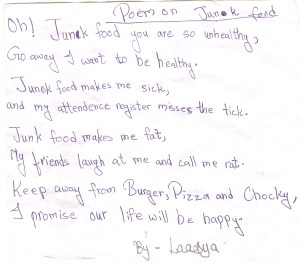 Poem on Junk food
Oh! Junk food you are so unhealthy,
Go away I want to be healthy.
Junk food makes me sick,
and my attendence register misses the tick.
Junk food makes me fat,
My friends laugh at me and call me rat.
Keep away from Burger, Pizza and Chocky,
I promise our life will be happy.
By - Laasya